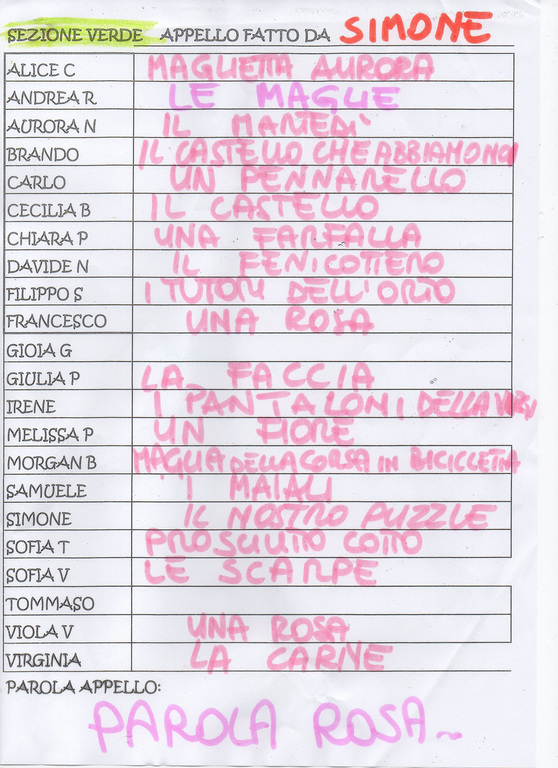 SEZIONE VERDE APPELLO FATTO DA SIMONE
ALICE C MAGLIETTA AURORA
ANDREA R LE MAGLIE
AURORA N IL MARTEDI'
BRANDO IL CASTELLO CHE ABBIAMO NOI
CARLO UN PENNARELLO
CECILIA B IL CASTELLO
CHIARA P UNA FARFALLA
DAVIDE N IL FENICOTTERO
FILIPPO S I TUTORI DELL'ORTO
FRANCESCO UNA ROSA
GIOIA G
GIULIA P LA FACCIA
IRENE I PANTALONI DELLA
MELISSA P UN FIORE
MORGAN B MAGLIA DELLA CORSA IN BICICLETTA
SAMUELE I MAIALI
SIMONE IL NOSTRO PUZZLE
SOFIA T PROSCIUTTO COTTO
SOFIA V LE SCARPE
TOMMASO
VIOLA V UNA ROSA
VIRGINIA LA CARNE
PAROLA APPELLO:
PAROLA ROSA~